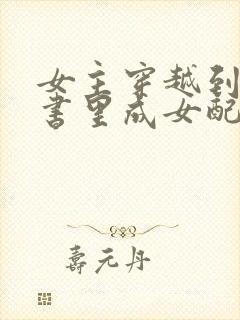 女主穿越到
书里成女配
寿元丹